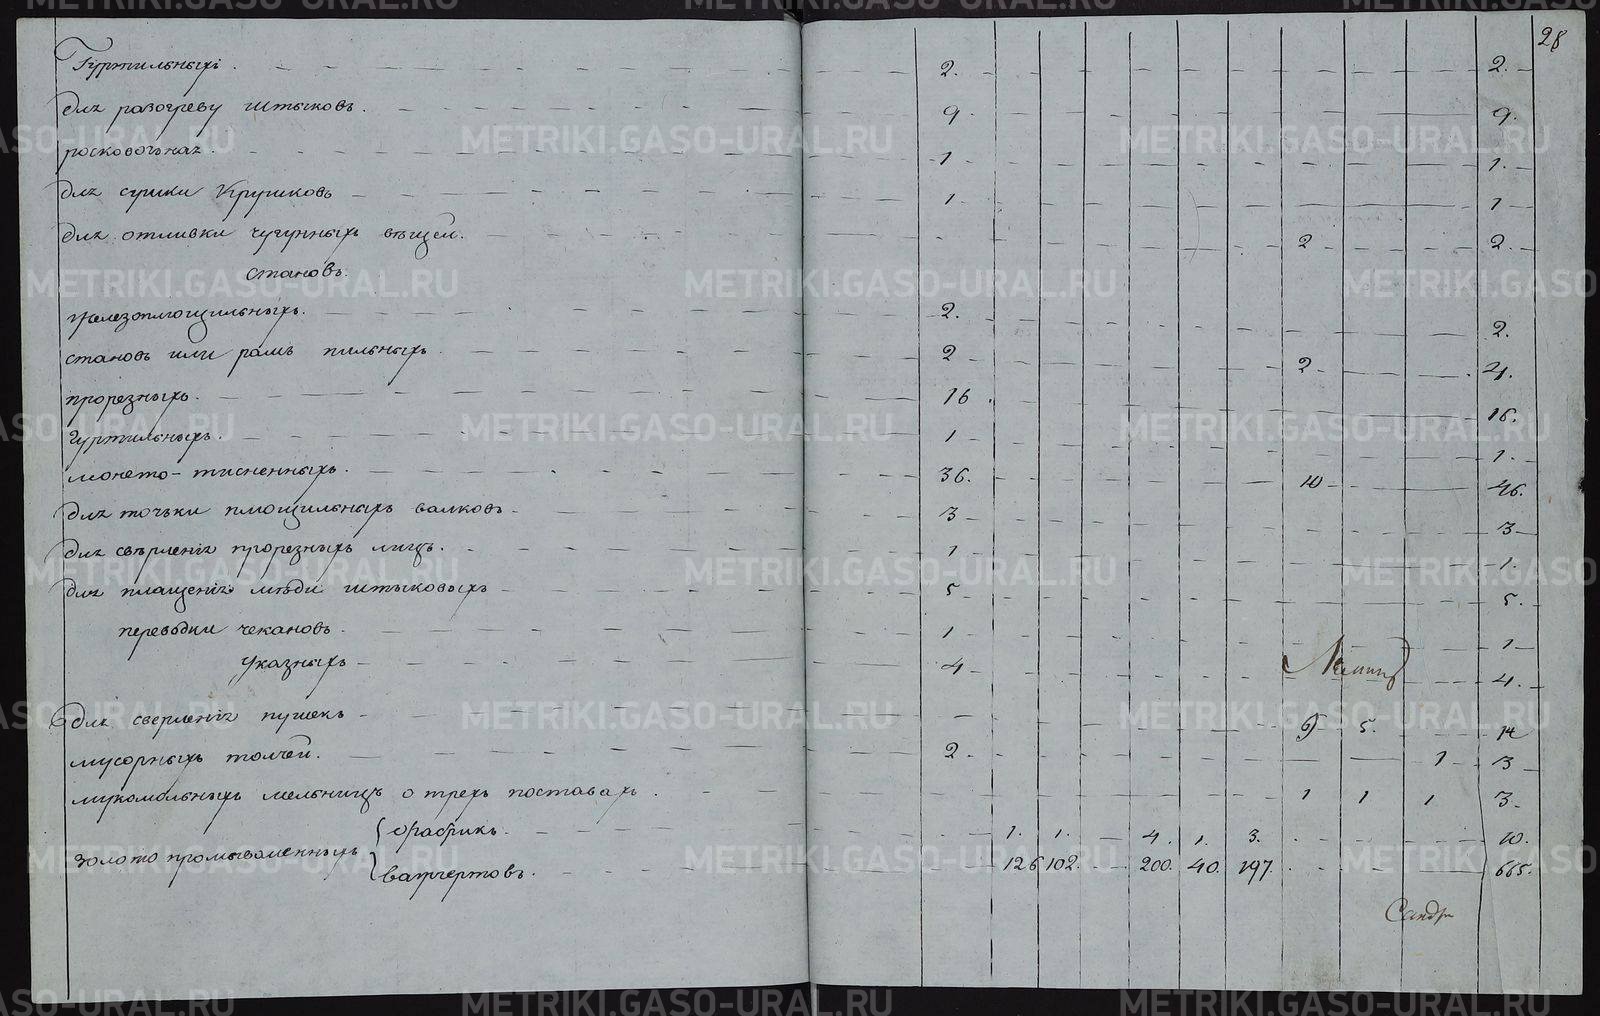 28
Гуртильныхъ. 2. 2.
для разогреву штыковъ. 9. 9.
росковочная. 1 1.
для сушки Кружковъ 1 1
для отливки чугунныхъ вещей. 2 2.
становъ.
железоплющильныхъ. 2. 2.
становъ или рамъ пильныхъ. 2 2 4.
прорезныхъ. 16. 16.
гуртильныхъ. 1 1.
монето-тисненныхъ. 36. 10 46.
для точьки плющильныхъ валковъ. 3 3
для свѣрленія прорезныхъ лицъ. 1 1.
для плащенія мѣди штыковыхъ 5 5.
переводки чекановъ. 1 1
указныхъ 4 4.
для сверленія пушекъ 9 5. 14
мусорныхъ толчей. 2 1 3
мукомольныхъ мельницъ о трехъ поставахъ. 1 1 1 3.
золото промываленныхъ
фабрикъ. 1. 1. 4. 1. 3. 10.
вашгертовъ. 126 102. 200. 40. 197. 665.